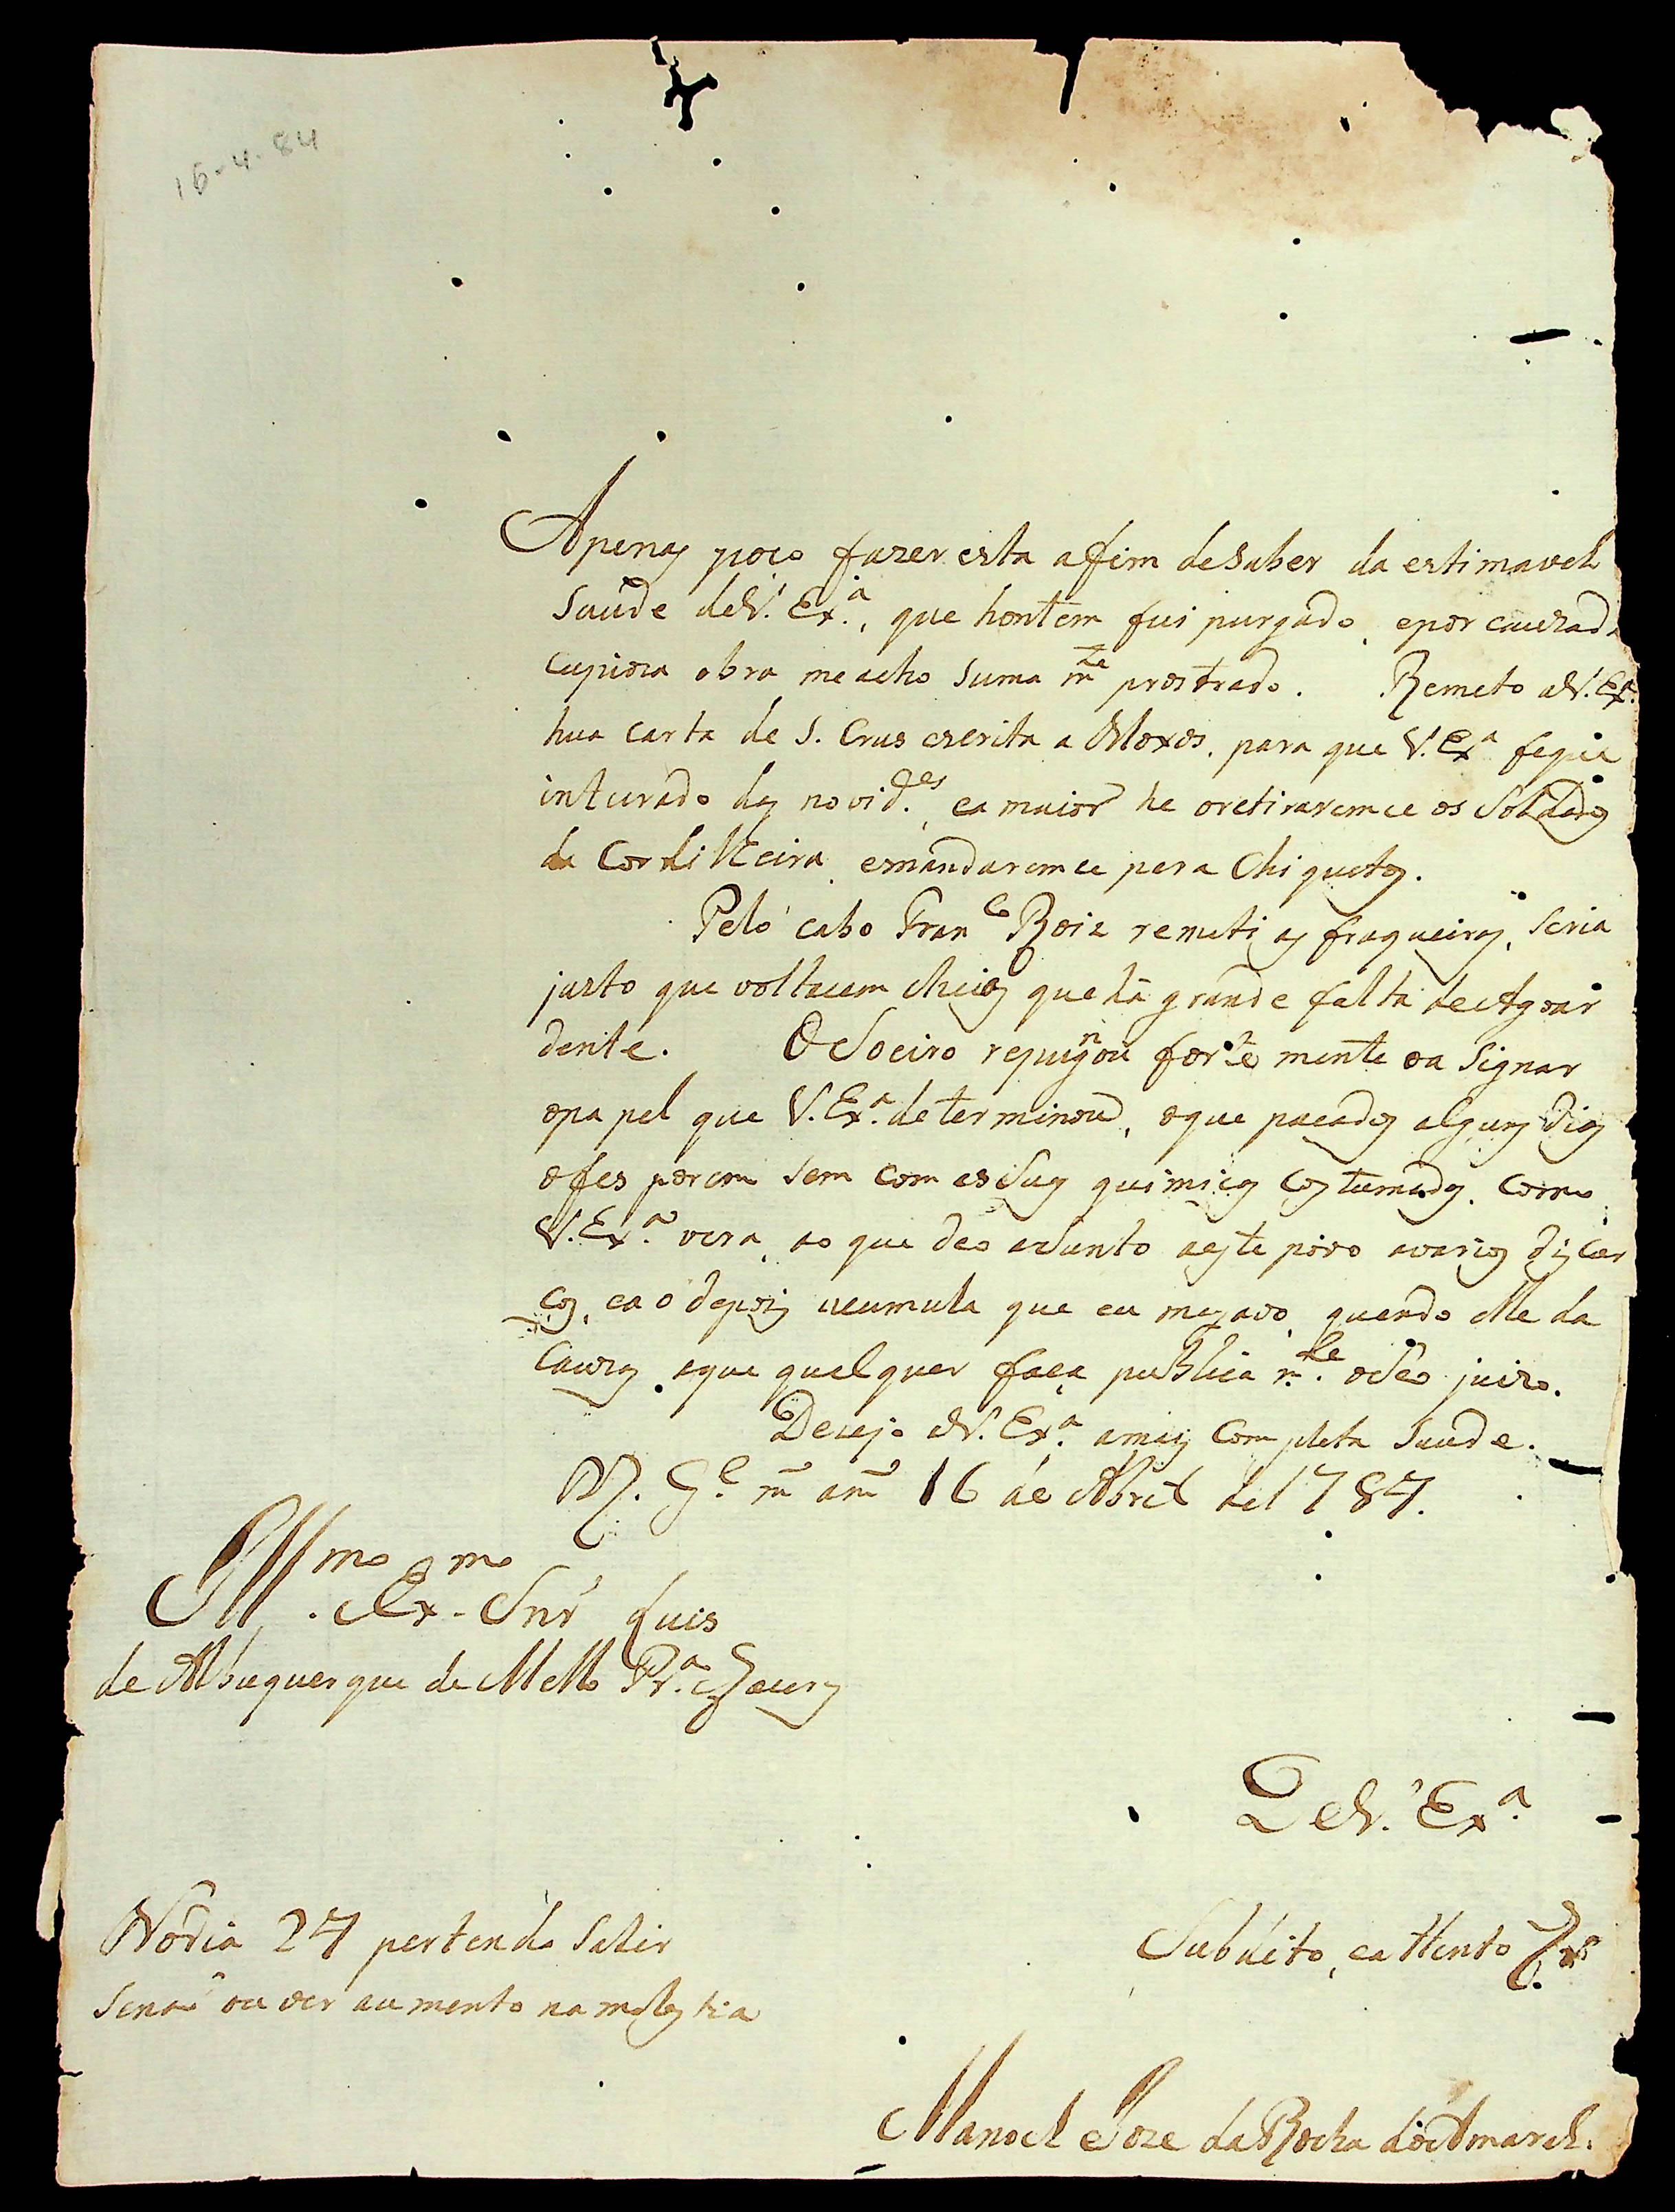 16-4-84
Apenas poço fazer esta afim desaber da estimavel
Saude deV. Exª., que hontem fui purgado, epor cauzada
cupioza obra meacho suma mte prostrado. Remeto aV. Exª.
hua carta de S. Crus escrita a Moxos, para que V. Exª fique
inturado das novides., ea maior he oretiraremce os Soldados
da Cordilheira, emandaremce pera Chiquitos.
Pelo cabo Franco Roiz remeti as fraqueiras, seria
justo que voltacem cheios que há grande falta de Agoar
dente. O Soeiro repugnou forte mente oa Signar
opapel que V. Exª. determinou, oque pacados alguns dias
ofes porem sem com as Suas quimicas costumadas, como
V. Exª. vera, ao que deo asunto aeste povo avarios discur
cos, ea o depois acumula que eu, quando elle da
cauzas aque qualquer faça publica mte. oSeo juizo.
Decejo aV. Exª. amais Completa Saude.
16 de Abril de1784.
Illmo. Exmo Snr Luis
de Albuquerque de Mello Prª. Caceres
DeV. Exª.
Nodia 24 pertendo Sahir
senaõ ouver aumento namolestia
Subdito, eattento
Manoel Joze daRocha doAmaral.